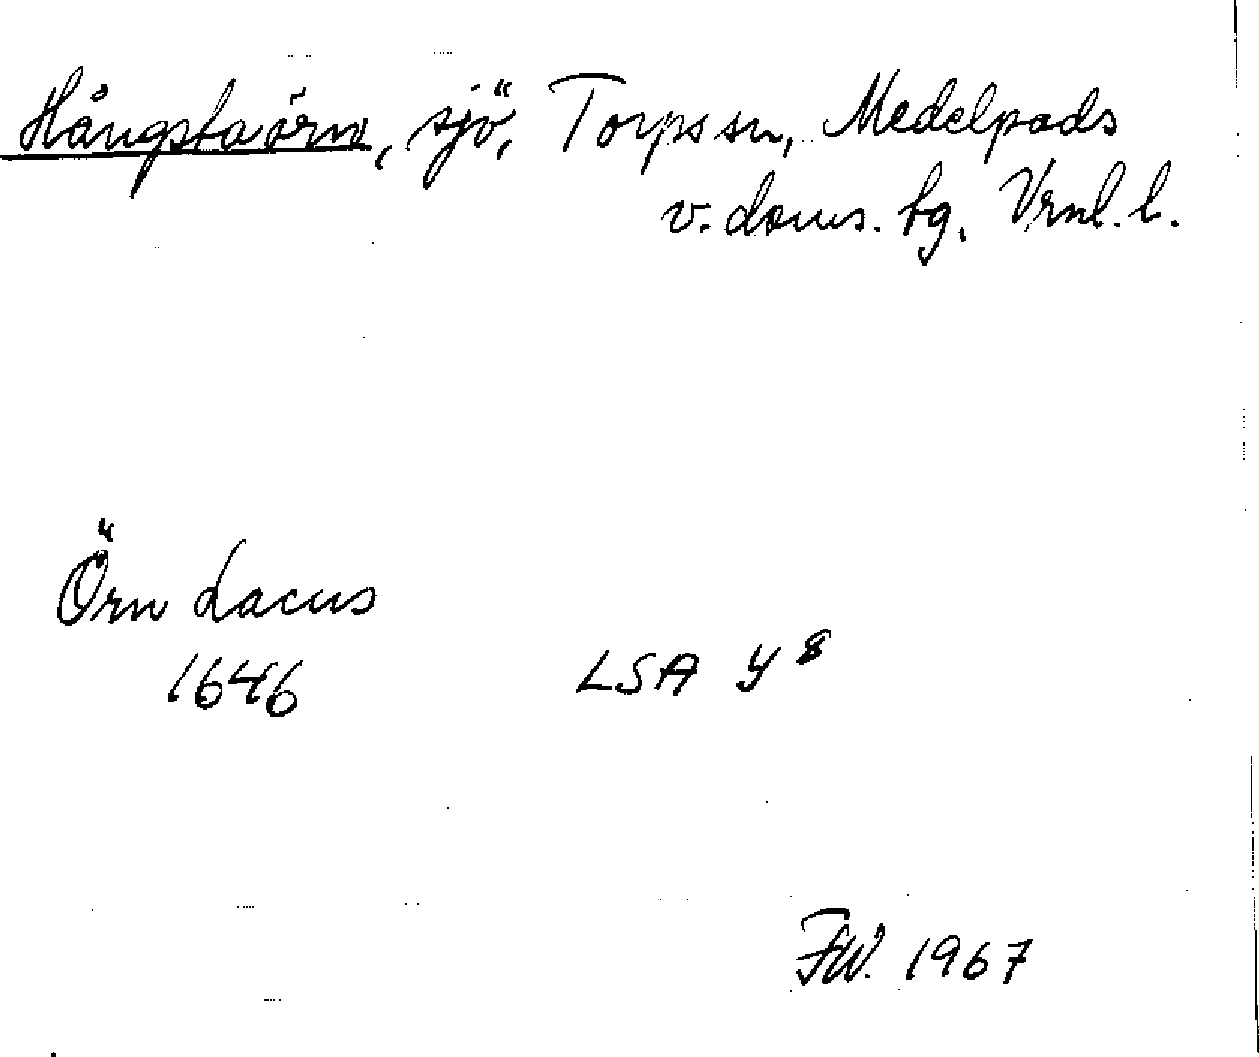 Hångstaörn, sjö, Torps sn, Medelpads
v. doms. tg. Vrnl. l.
Örn Lacus
1646 LSA Y 8
FW. 1967